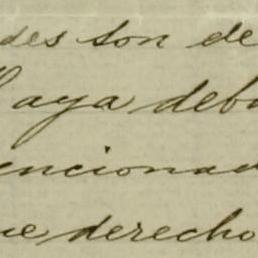 des son de
aya deb
encionad
ue derecho